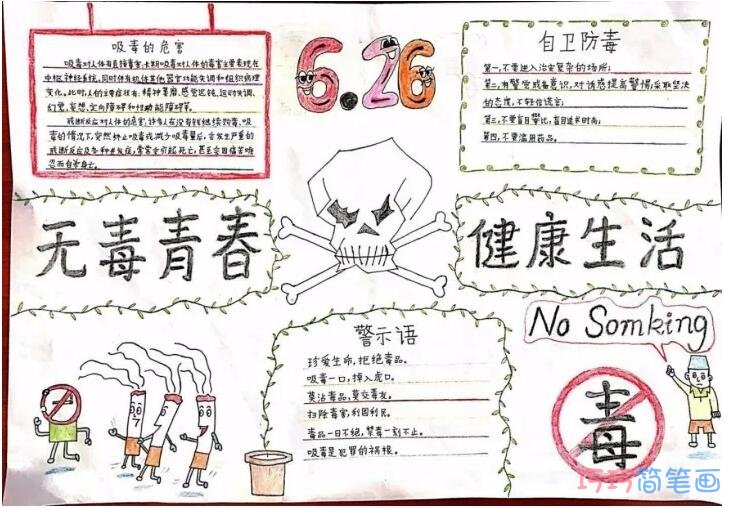 吸毒的危害
吸毒对人体有直接毒害,长期吸毒对人体的毒害主要表现在
中枢神经系统,同时伴有机体其他器官功能失调和组织病理
变化。此时,人的主要症状有:精神萎靡,感觉迟钝,运动失调、
幻觉、妄想、定向障碍和性功能障碍等。
戒断反应对人体的危害,许多人在没有钱继续购毒、吸
毒的情况下,突然终止吸毒或减少吸毒量后,会发生严重的
戒断反应及各种并发症,常常会引起死亡,甚至会因痛苦难
忍而自杀身亡。
6.26
自卫防毒
第一,不要进入治安复杂的场所;
第二,有警觉戒备意识,对诱惑提高警惕,采取坚决
的态度,不轻信谎言;
第三,不要盲目攀比,盲目追求时尚;
第四,不要滥用药品。
无毒青春
健康生活
警示语
珍爱生命,拒绝毒品。
吸毒一口,掉入虎口。
莫沾毒品,莫交毒友。
扫除毒害,利国利民。
毒品一日不绝,禁毒一刻不止。
吸毒是犯罪的祸根。
No Somking
毒
巧巧简笔画